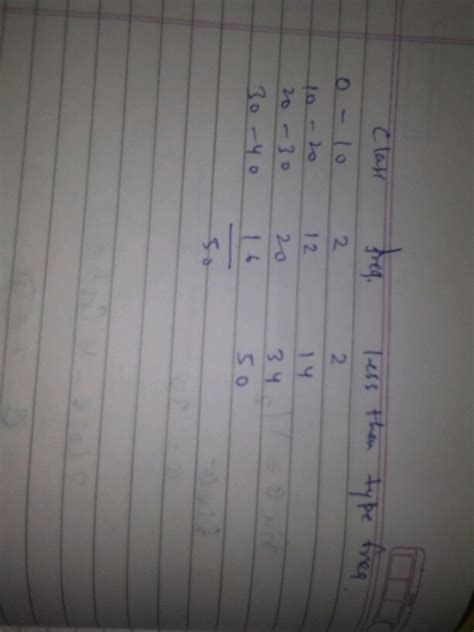 Class freq. less then type freq
0 - 10 2 2
10 - 20 12 14
20 - 30 20 34
30 - 40 16 50
50